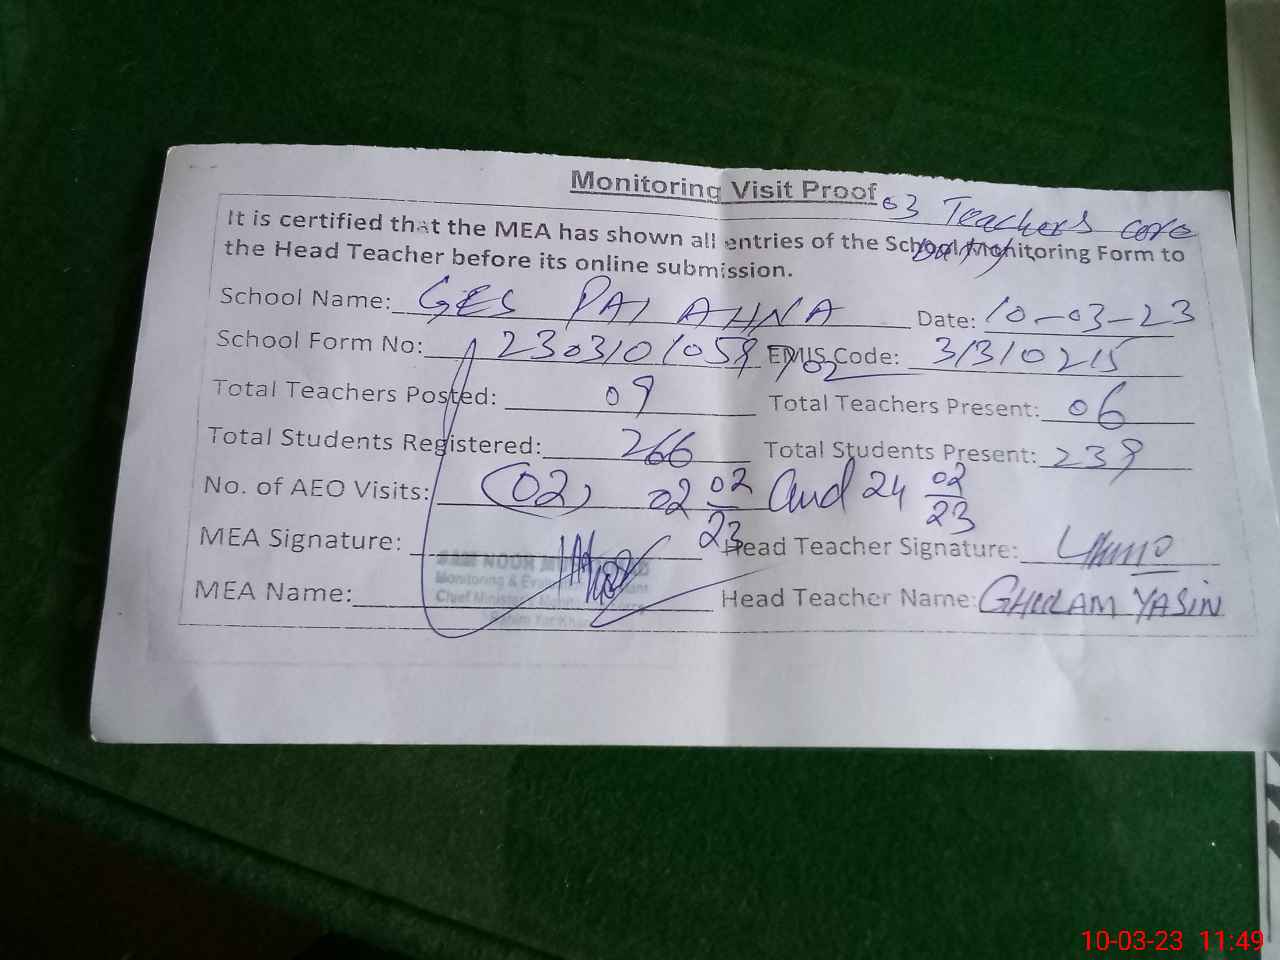 Monitoring Visit Proof
03 Teachers
It is certified that the MEA has shown all entries of the School Monitoring Form to
the Head Teacher before its online submission.
School Name: GES PAI AHNA Date: 10-03-23
School Form No: EMIS Code: 31310215
Total Teachers Posted: 09 Total Teachers Present: 06
Total Students Registered: 266 Total Students Present: 239
No. of AEO Visits: (02) 02 02/23 and 24 02/23
MEA Signature: Head Teacher Signature:
MEA Name: Head Teacher Name: GHULAM YASIN
Monitoring &
Chief
10-03-23 11:49